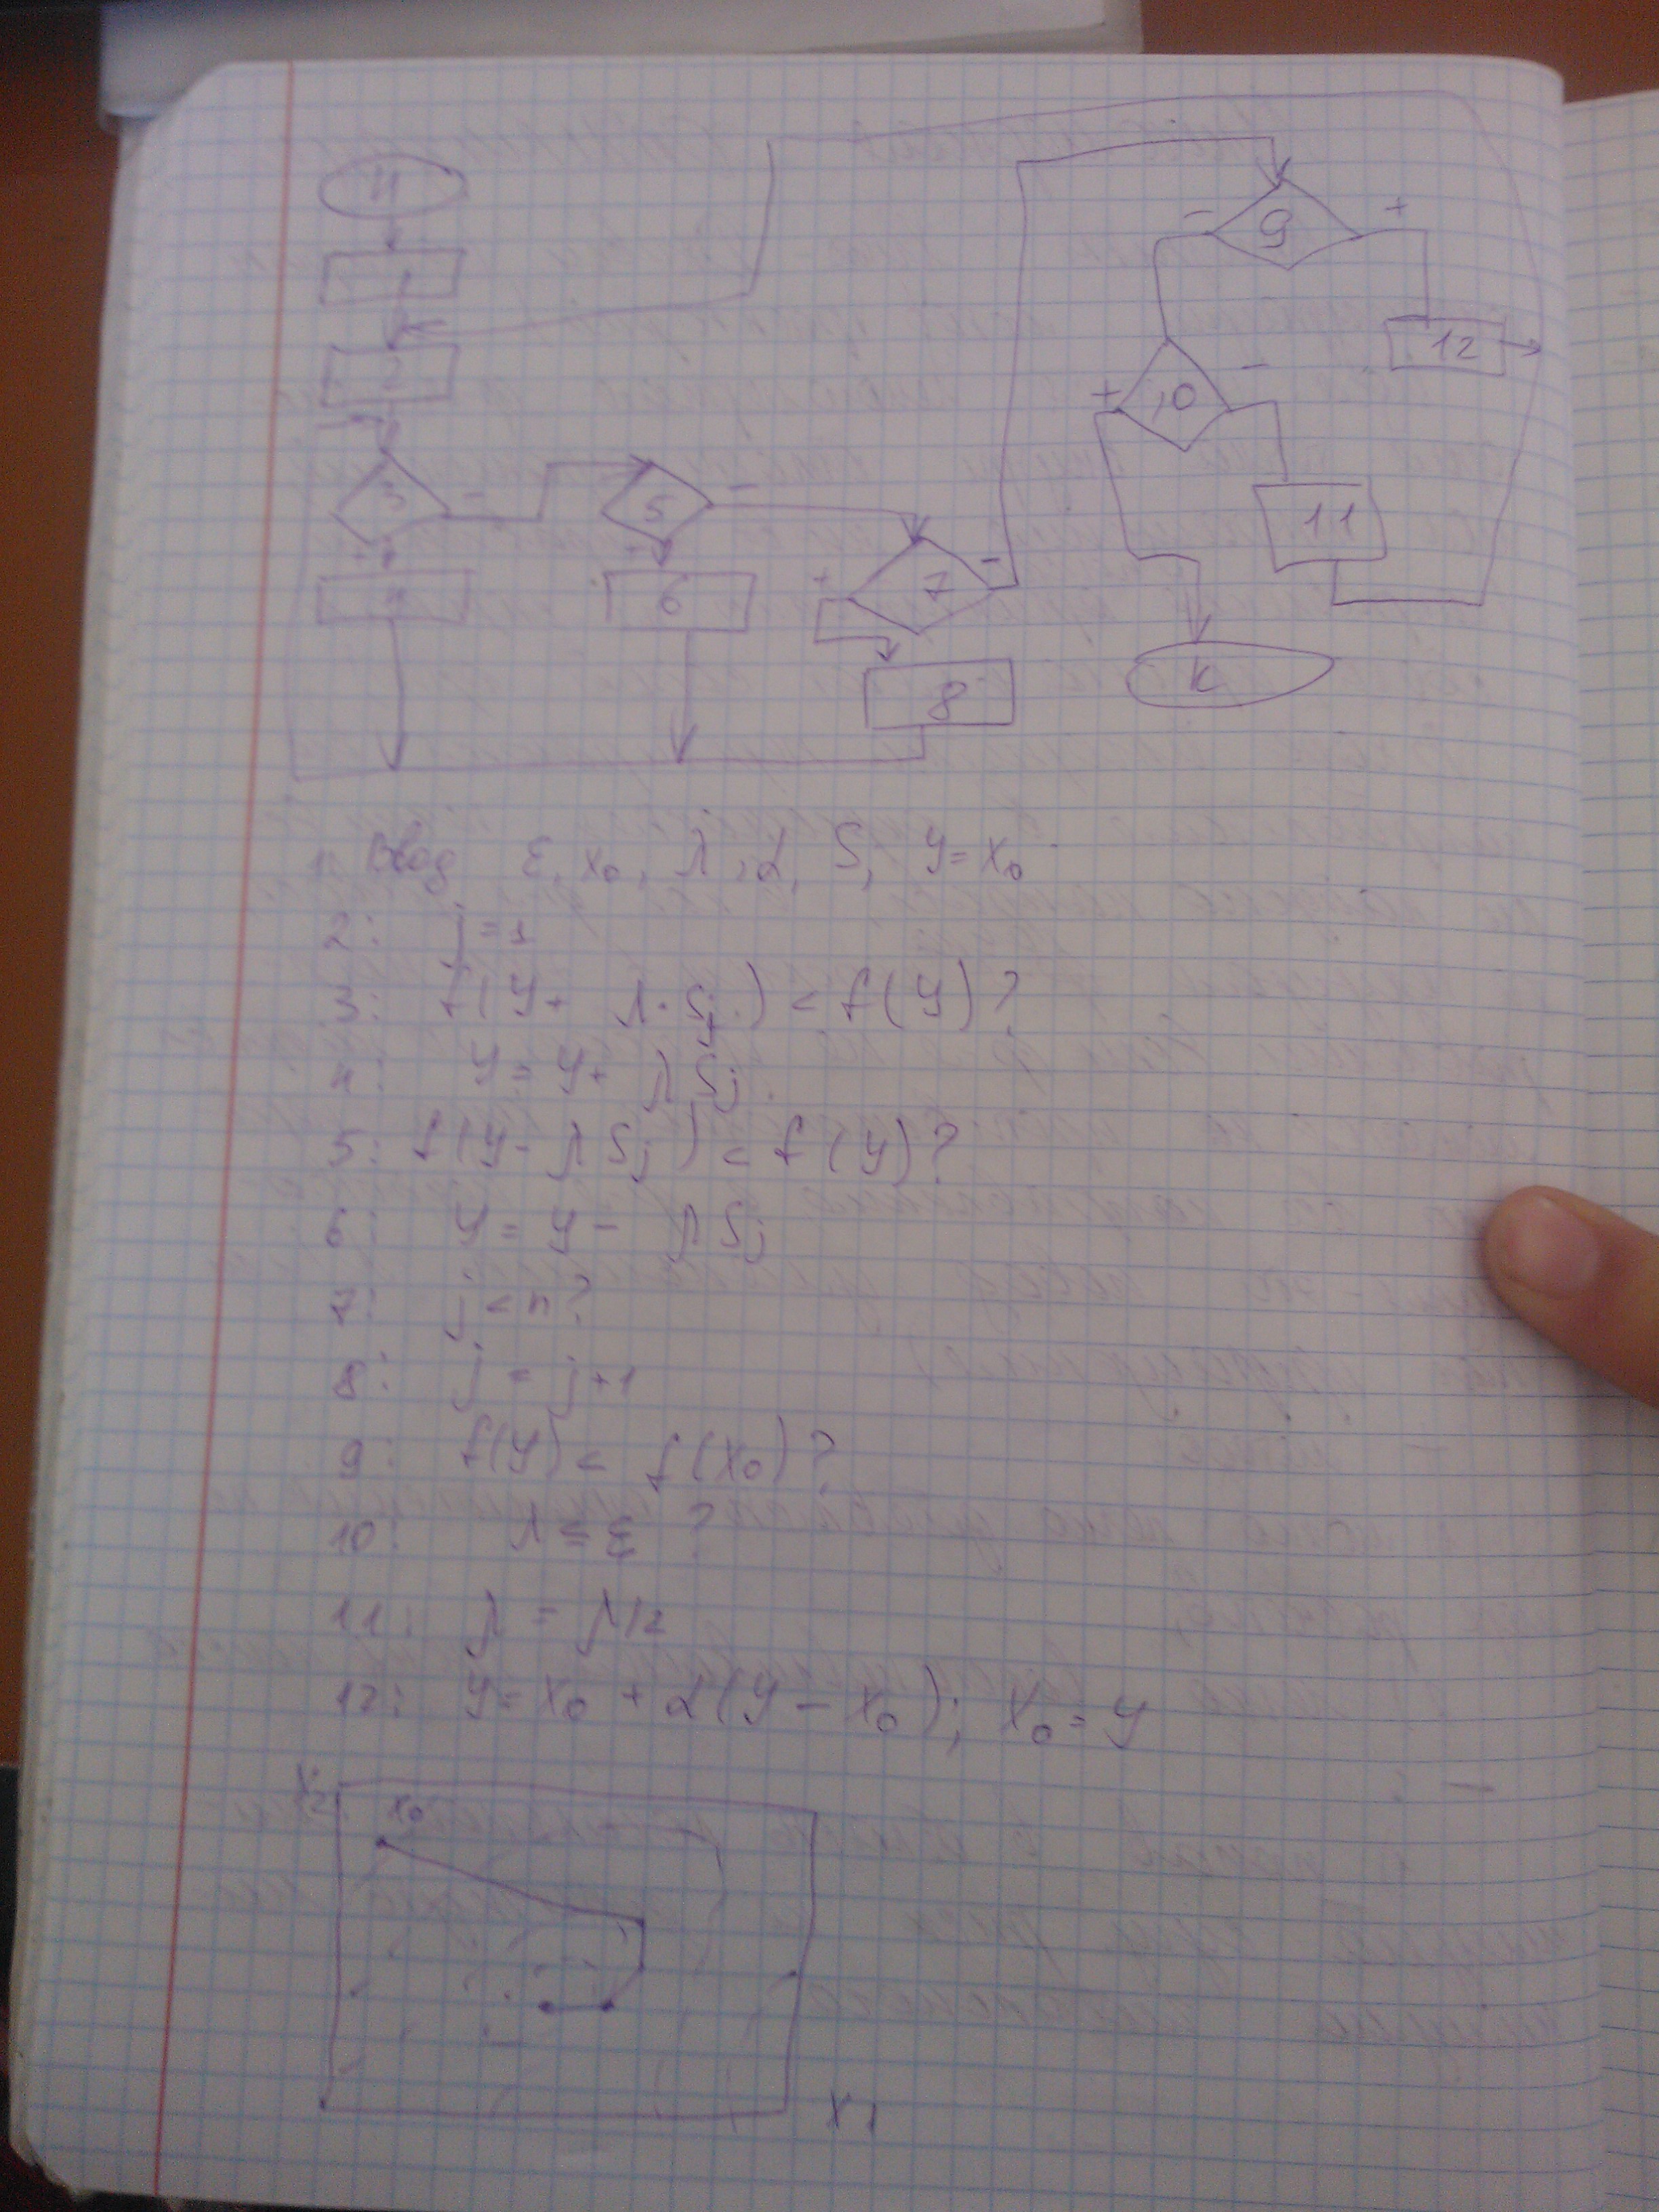 Н
1
2
3 -
+
4
5 -
+
6
7 -
+
8
- 9 +
12
+ 10 -
11
К
1 Ввод ε, x₀, λ, α, S, y = x₀
2: j = 1
3: f(y + λ·Sj) < f(y)?
4: y = y + λSj
5: f(y - λSj) < f(y)?
6: y = y - λSj
7: j < n?
8: j = j+1
9: f(y) < f(x₀)?
10: λ ≤ ε ?
11: λ = λ/2
12: y = x₀ + α(y - x₀); x₀ = y
x₂
x₀
x₁